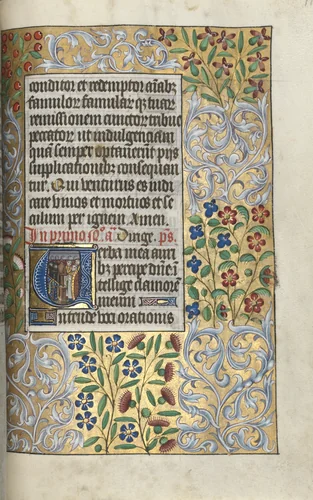 conditor et redemptor aĩabʒ
famulor famular qʒ tuar
remissionem cunctor tribue
peccator ut indulgenciam
quã semper optauerũt pijs
supplicationibʒ consequan
tur. Qui venturus es iudi
care viuos et mortuos et se
culum per ignem Amen.
In primo nõ. a. Dirige. p̃s.
Uerba mea auri
bʒ percipe dñe in
tellige clamorem
meum
Intende voci orationis